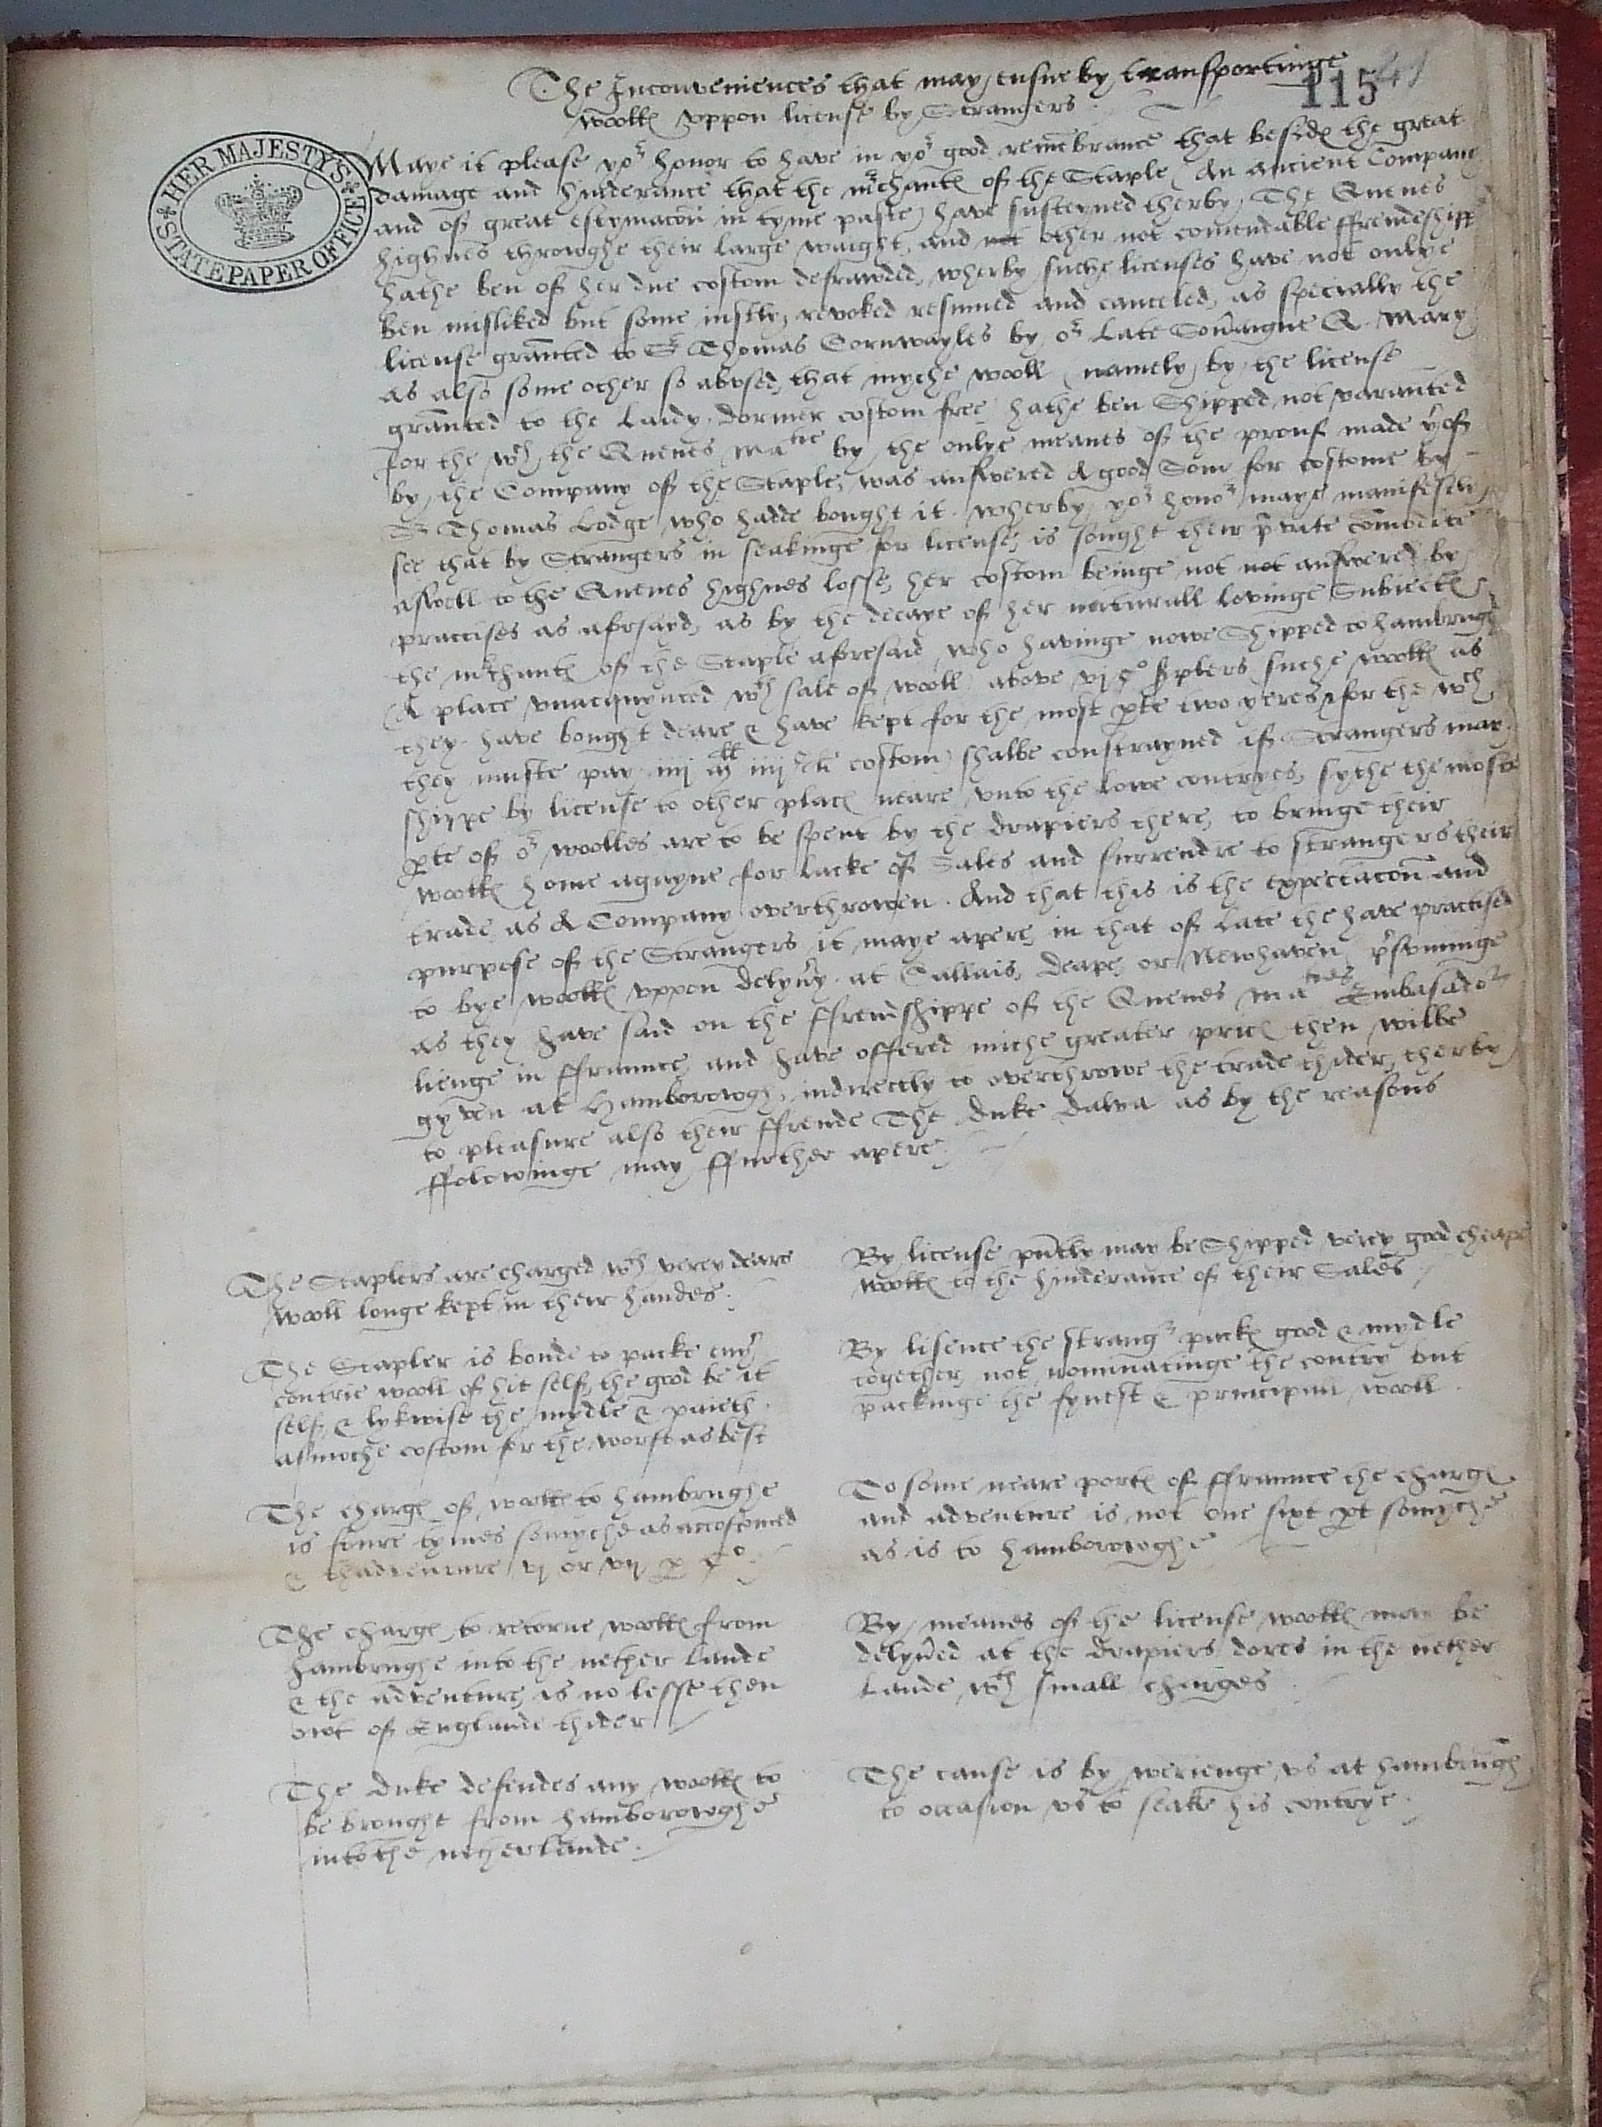 The Inconveniences that may ensue by transportinge
115
woolles uppon license by Strangers
HER MAJESTY'S STATE PAPER OFFICE
Maye it please yor honor to have in yor good remembrance that besides the great
damage and hinderance that the mrchants of the Staple (An ancient Company
and of great estymacon in tyme paste) have susteyned therby, The Quenes
highnes throwghe their large waight, and not other not comendable ffrendeshipp
hathe ben of her due costom defrawded, wherby suche licenses have not onlye
ben misliked but some iustly revoked resumed and canceled, as specially the
license graunted to Sr Thomas Cornwayles by or Late Soveraigne Q. Mary
as also some other so abused, that myche wooll (namely by the license
graunted to the Lady Dormer costom free) hathe ben Shipped, not waranted
for the wch the Quenes Matie by the onlye meanes of the prouf made yrof
by the Company of the Staple, was answered A good Som for costome by
Sr Thomas Lodge who hadde bought it. wherby yor honor maye manifestly
see that by Strangers in seakinge for license, is sought their private comoditie
aswell to the Quenes highnes losse, her costom beinge not not answered by
practises as aforsayd, as by the decaye of her naturall lovinge Subiects
the mrchants of the Staple aforesaid, who havinge nowe Shipped to hambrughe
(A place unacquynted wth sale of wooll) above vj co serplers suche woolles as
they have bought deare & have kept for the most parte two yeres (for the wch
they muste pay iiij ll costom) shalbe constrayned if Strangers may
shippe by license to other places neare unto the lowe contryes, sythe the moste
parte of or woolles are to be spent by the drapiers there, to bringe their
woolles home agayne for lacke of Sales and surrendre to strangers their
trade, as A Company overthrowen. And that this is the expectacon and
purpose of the Strangers it maye apere, in that of late the have practised
to bye woolles uppon delyvry at Callais, deape, or Newhaven, presuminge
as they have said on the ffrendshippe of the Quenes maties Embasador
lienge in ffraunce, and have offered miche greater prices then wilbe
gyven at Hamborowgh, indirectly to overthrowe the trade thider, therby
to pleasure also their ffrende The Duke Dalva as by the reasons
ffolowinge may ffurther apere.
The Staplers are charged wth verey deare
wooll longe kept in their handes.
By license pntly may be Shipped verey good cheape
woolles to the hinderance of their Sales
The Stapler is bonde to packe every
contrie wooll of hit self, the good be it
self, & lykwise the mydle & paieth
asmoche costom for the worst as best
By lisence the stranger packes good & mydle
together, not nominatinge the contry but
packinge the fynest & principall wooll
The charges of woolles to hambrughe
is foure tymes somyche as accostomed
& thadventure vj or vij per co.
To some neare portes of ffraunce the charges
and adventure is not one sixt part somyche
as is to hamborowghe
The charges to retorne woolles from
hambrughe into the nether lande
& the adventure, is no lesse then
owt of Englande thider
By meanes of the license woolles may be
delyvered at the drapiers dores in the nether
lande, wth small charges
The Duke defendes any woolles to
be brought from hamborowghe
into the netherlande.
The cause is by werienge us at hambrugh
to occasion us to seake his contrye.